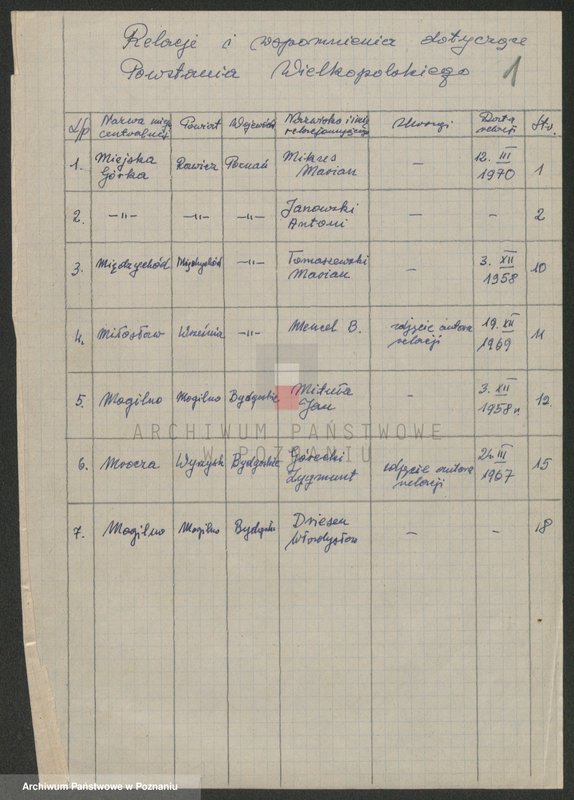 Relacje i wspomnienia dotyczące
Powstania Wielkopolskiego 1
L/p Nazwa miejsc. centralnej Powiat Województ. Nazwisko i imię relacjonującego Uwagi Data relacji Str.
1. Miejska Górka Rawicz Poznań Marian — 12. III 1970 1
2. —"— —"— —"— Janowski Antoni — - 2
3. Międzychód Międzychód —"— Tomaszewski Marian — 3. XII 1958 10
4. Miłosław Września —"— Mencel B. zdjęcie autora relacji 19. XII 1969 11
5. Mogilno Mogilno Bydgoskie Mikuła Jan — 3. XII 1958 r. 12.
6. Wyrzysk Bydgoskie Górecki Zygmunt zdjęcie autora relacji 24. III 1967 15
7. Mogilno Mogilno Bydgoskie Władysław — - 18
ARCHIWUM PAŃSTWOWE
W POZNANIU
Archiwum Państwowe w Poznaniu